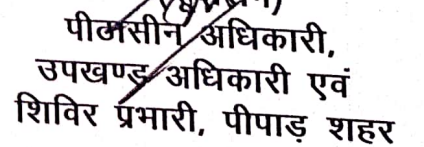 पीठासीन अधिकारी,
उपखण्ड अधिकारी एवं
शिविर प्रभारी, पीपाड़ शहर